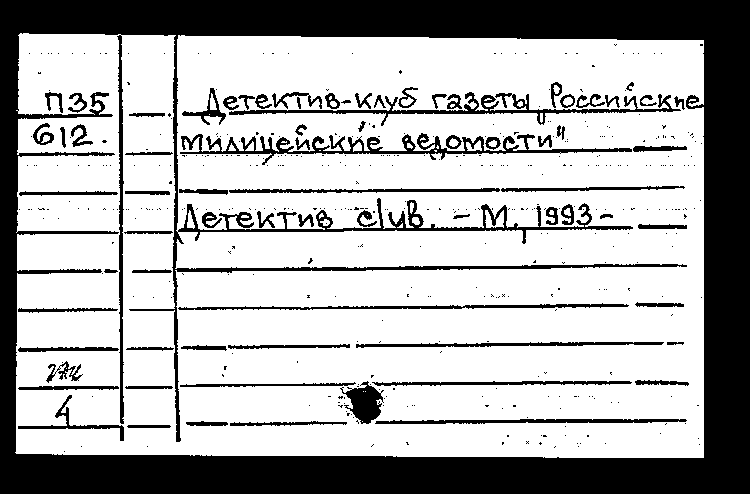 П35 Детектив-клуб газеты „Российские
612. милицейские ведомости"
Детектив club. - М., 1993 -
4